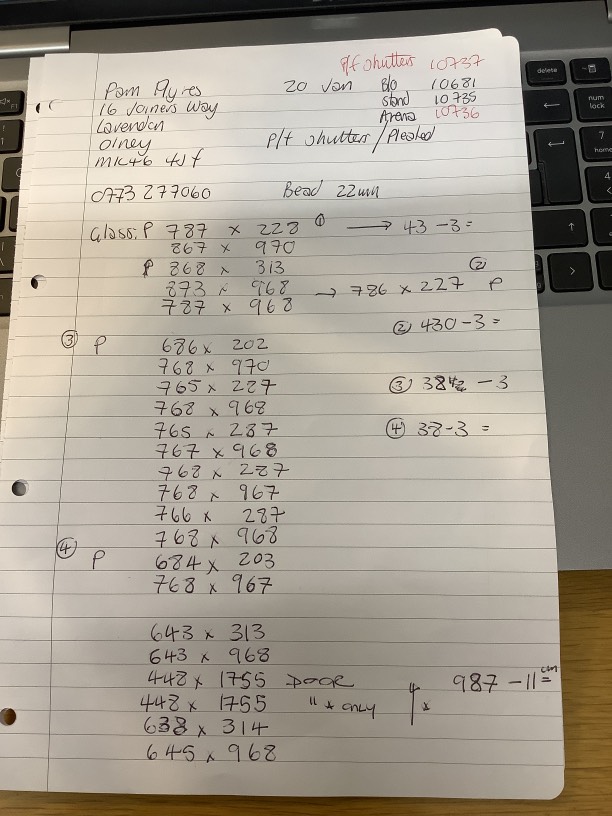 P/f shutters 10737
Pam Ayres 20 Jan B/o 10681
16 Joiners Way stand 10735
Lavendon Arena 10736
Olney P/f shutters / Pleated
MK46 4JF
0773 277060 Bead 22mm
Glass: P 787 x 228 ① → 43 - 3 =
867 x 970
P 868 x 313 ②
873 x 968 → 786 x 227 P
787 x 968
② 430 - 3 =
③ P 686 x 202
768 x 970
765 x 287 ③ 38 1/2 - 3
768 x 968
765 x 287 ④ 38 - 3 =
767 x 968
768 x 287
768 x 967
766 x 287
768 x 968
④ P 684 x 203
768 x 967
643 x 313
643 x 968
448 x 1755 DOOR 987 - 11 cm =
448 x 1755 " * only *
638 x 314
645 x 968
delete
num lock
7
home
4